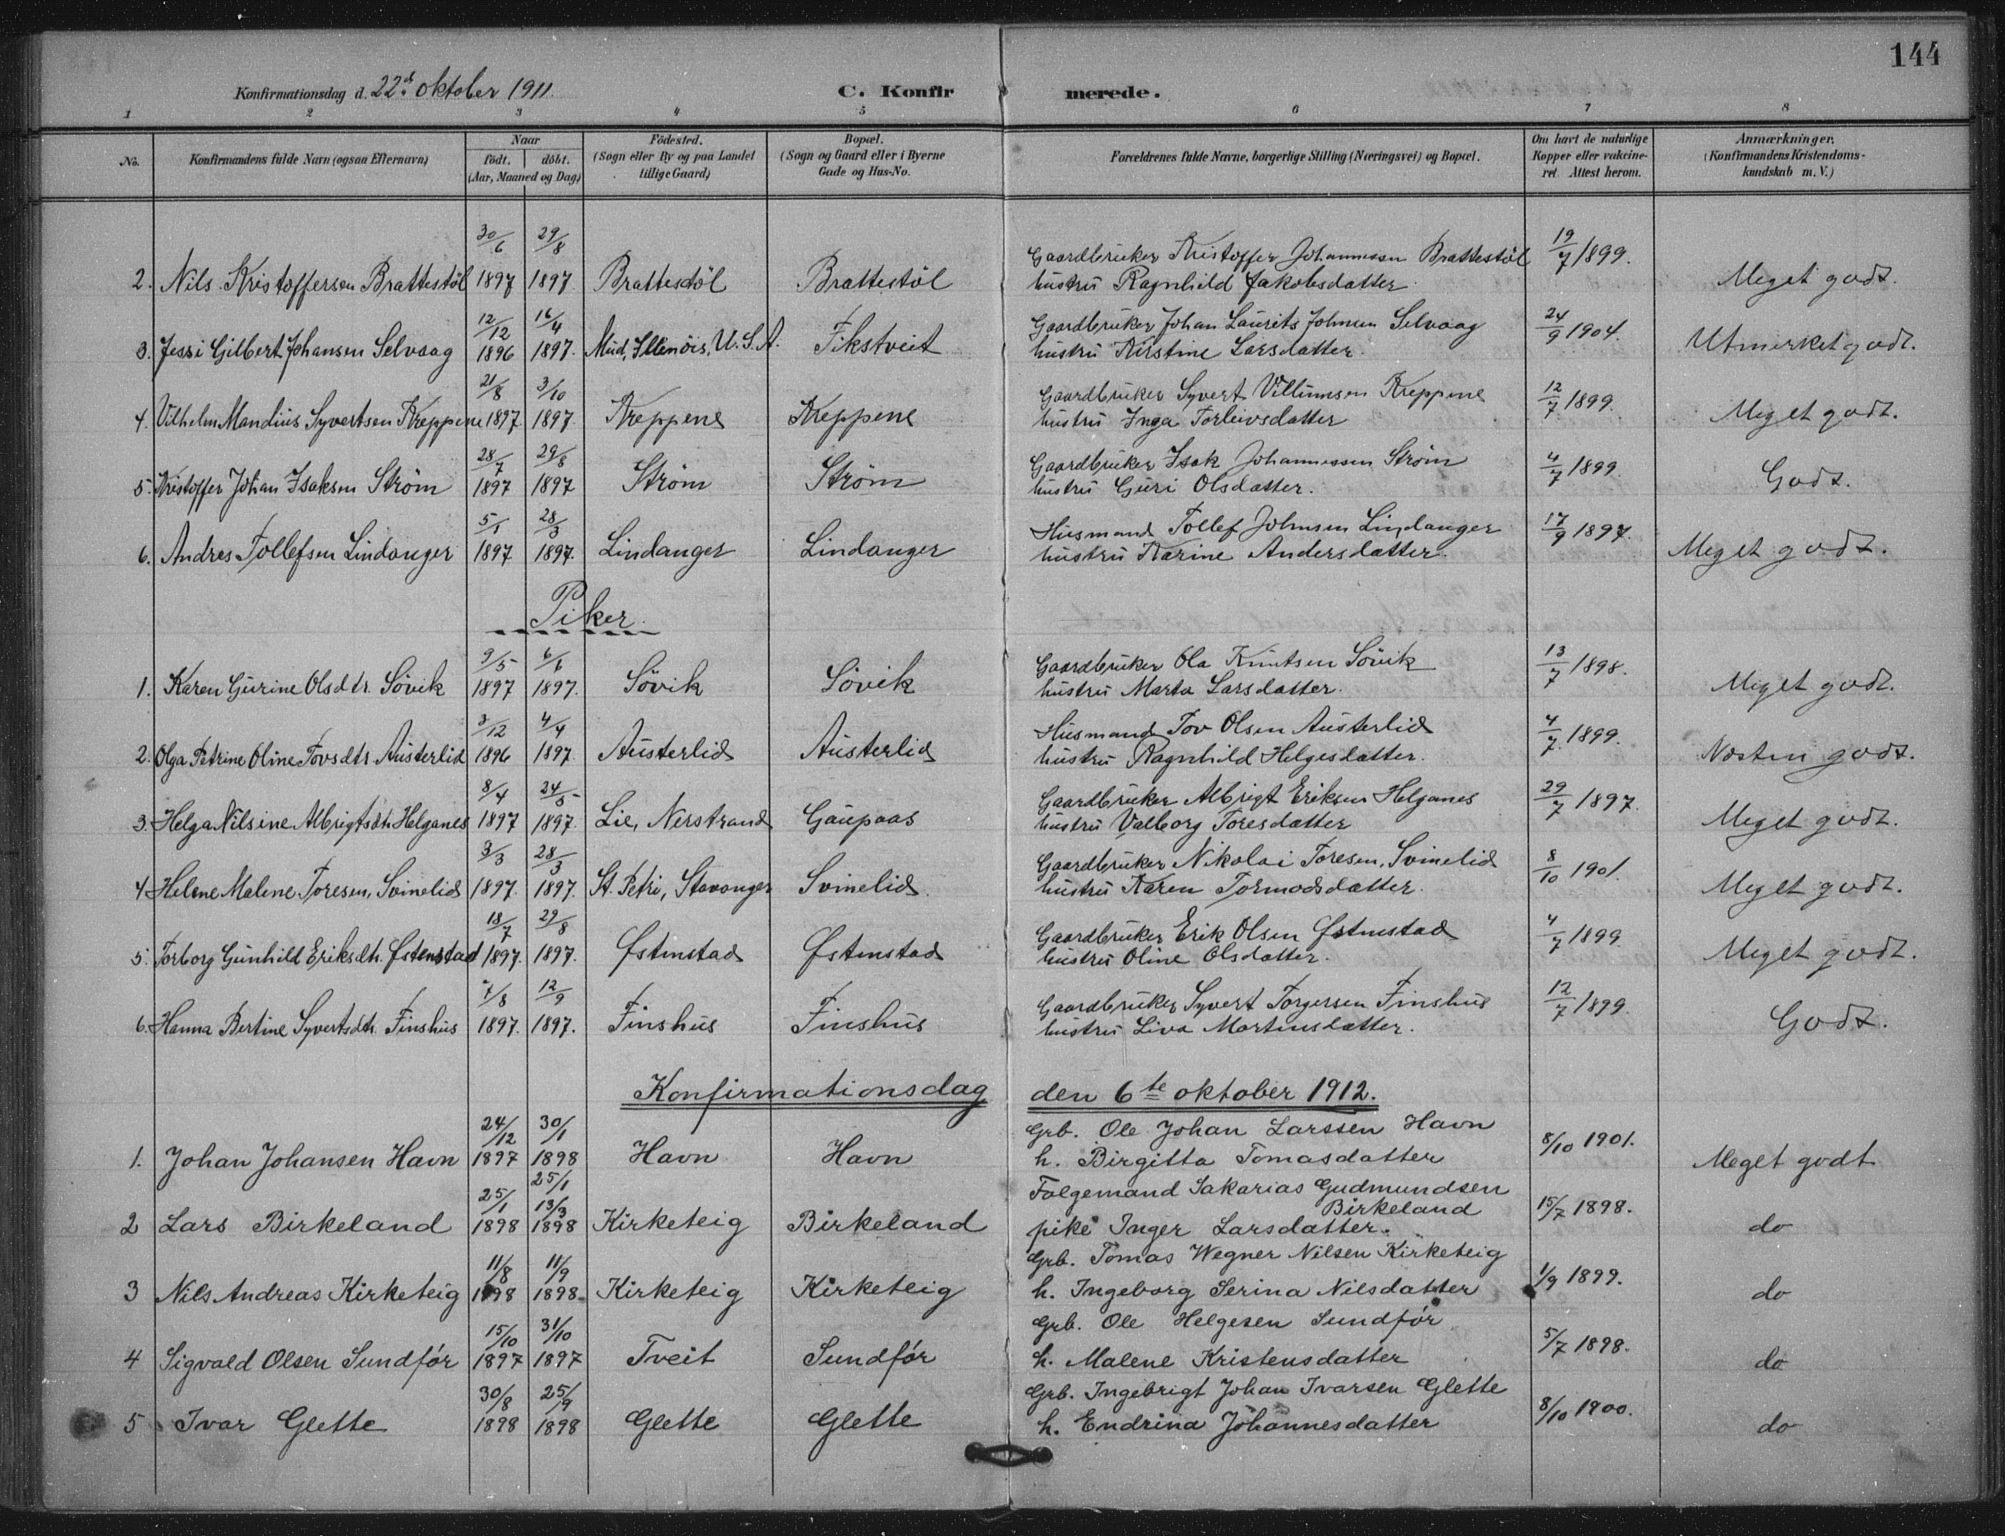 144
Konfirmationsdag d. 22d. oktober 1911.
C. Konfirmerede.
1 2 3 4 5 6 7 8
No. Konfirmandens fulde Navn (ogsaa Efternavn) Naar født. døbt. (Aar, Maaned og Dag) Fødested. (Sogn eller By og paa Landet tillige Gaard) Bopæl. (Sogn og Gaard eller i Byerne Gade og Hus-No. Forældrenes fulde Navne, borgerlige Stilling (Næringsvei) og Bopæl. Om havt de naturlige Kopper eller vakcineret. Attest herom. Anmærkninger. (Konfirmandens Kristendomskundskab m. V.)
30/6 29/8 Gaardbruker Kristoffer Johannessen Brattestøl 19/7 1899.
2. Nils Kristoffersen Brattestøl 1897 1897 Brattestøl Brattestøl hustru Ragnhild Jakobsdatter. Meget godt.
12/12 16/4 Gaardbruker Johan Laurits Johnsen Selvaag 24/9 1904.
3. Jessi Gilbert Johansen Selvaag 1896 1897. Mud, Illenois, U.S.A. Fikstveit hustru Kirstine Larsdatter. Utmerket godt.
21/8 3/10 Gaardbruker Syvert Villumsen Kreppene 12/7 1899.
4. Vilhelm Mandius Syvertsen Kreppene 1897. 1897. Kreppene Kreppene hustru Inga Torleivsdatter Meget godt.
28/7 29/8 Gaardbruker Isak Johannessen Strøm 4/7 1899.
5. Kristoffer Johan Isaksen Strøm 1897 1897 Strøm Strøm hustru Guri Olsdatter. Godt.
5/1 28/3 Husmand Tollef Johnsen Lindanger 17/9 1897.
6. Andres Tollefsen Lindanger 1897 1897. Lindanger Lindanger hustru Karine Andersdatter. Meget godt.
Piker.
9/5 6/6 Gaardbruker Ola Knutsen Søvik 13/7 1898.
1. Karen Gurine Olsdtr. Søvik 1897 1897. Søvik Søvik hustru Marta Larsdatter. Meget godt.
3/12 4/4 Husmand Tov Olsen Austerlid 4/7 1899.
2. Olga Petrine Oline Tovsdtr. Austerlid 1896 1897. Austerlid Austerlid hustru Ragnhild Helgesdatter. Næsten godt.
8/4 24/5 Gaardbruker Albrigt Eriksen Helganes 29/7 1897.
3. Helga Nilsine Albrigtsdtr. Helganes 1897 1897. Lie, Nerstrand Gaupaas hustru Valborg Toresdatter Meget godt.
3/3 28/3 Gaardbruker Nikolai Toresen, Svinelid 8/10 1901.
4 Helene Malene Toresen, Svinelid 1897. 1897. St. Petri, Stavanger Svinelid. hustru Karen Tormodsdatter. Meget godt.
18/7 29/8 Gaardbruker Erik Olsen Østenstad 4/7 1899.
5. Torborg Gunhild Eriksdtr. Østenstad 1897. 1897. Østenstad Østenstad hustru Oline Olsdatter. Meget godt.
7/8 12/9 Gaardbruker Syvert Torgersen Finshus 12/7 1899.
6. Hanna Bertine Syvertsdtr. Finshus 1897. 1897. Finshus Finshus hustru Liva Martinsdatter. Godt.
Konfirmationsdag den 6te oktober 1912.
24/12 30/1 Grb. Ole Johan Larssen Havn 8/10 1901.
1. Johan Johansen Havn 1897 1898 Havn Havn h. Birgitta Tomasdatter Meget godt
25/1 25/1 13/3 Følgemand Sakarias Gudmundsen Birkeland 15/7 1898.
2 Lars Birkeland 1898 1898 Kirketeig Birkeland pike Inger Larsdatter. do
11/8 11/9 Grb. Tomas Wegner Nilsen Kirketeig 1/9 1899.
3 Nils Andreas Kirketeig 1898 1898 Kirketeig Kirketeig h. Ingeborg Serina Nilsdatter do
15/10 31/10 Grb. Ole Helgesen Sundfør 5/7 1898.
4 Sigvald Olsen Sundfør 1897 1897 Tveit Sundfør h. Malene Kristensdatter do
30/8 25/9 Grb. Ingebrigt Johan Ivarsen Glette 8/10 1900.
5 Ivar Glette 1898 1898 Glette Glette h. Endrina Johannesdatter do